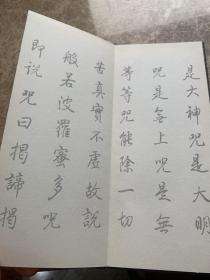 是大神咒是大明
咒是無上咒是無
等等咒能除一切
苦真實不虛故説
般若波羅蜜多咒
即説咒曰揭諦揭